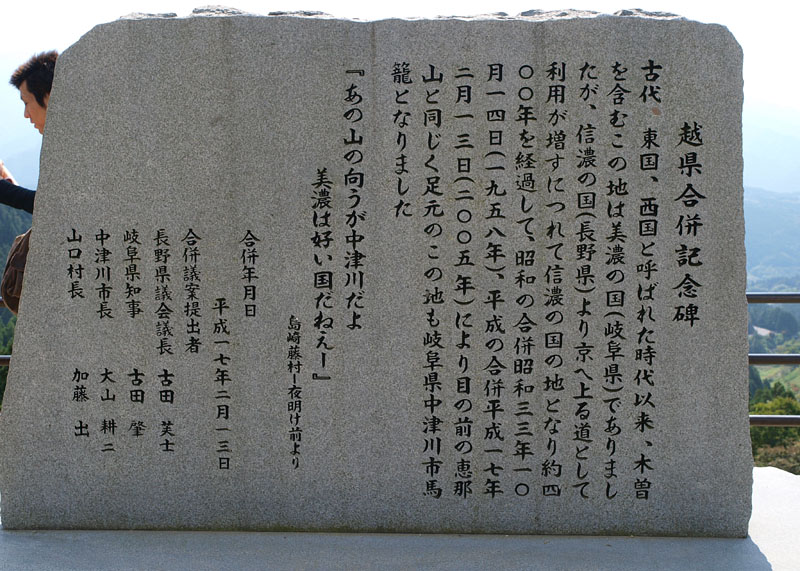 越県合併記念碑
古代　東国、西国と呼ばれた時代以来、木曽
を含むこの地は美濃の国(岐阜県)でありまし
たが、信濃の国(長野県)より京へ上る道として
利用が増すにつれて信濃の国の地となり約四
〇〇年を経過して、昭和の合併昭和三三年一〇
月一四日(一九五八年)、平成の合併平成一七年
二月一三日(二〇〇五年)により目の前の恵那
山と同じく足元のこの地も岐阜県中津川市馬
籠となりました
『あの山の向うが中津川だよ
美濃は好い国だねえー』
島崎藤村ー夜明け前より
合併年月日
平成一七年二月一三日
合併議案提出者
長野県議会議長　古田　芙士
岐阜県知事　古田　肇
中津川市長　大山　耕二
山口村長　加藤　出